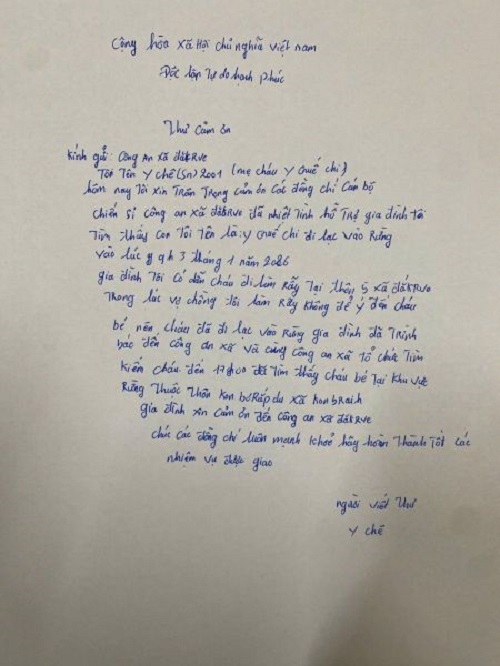 Cộng hòa xã Hội chủ nghĩa việt nam
Độc lập Tự do hạnh phúc
Thư cảm ơn
kính gửi: công an xã đăkRve
Tôi Tên Y chế (Sn) 2001 (mẹ cháu Y chuế chi)
hôm nay Tôi xin Trân Trọng cảm ơn các đồng chí cán bộ
chiến sĩ công an xã đăkRve đã nhiệt tình hỗ Trợ gia đình tôi
Tìm thấy con Tôi Tên là: y chuế chi đi lạc vào Rừng
vào lúc 9 h 3 Tháng 1 năm 2026
gia đình Tôi có dẫn cháu đi làm Rẫy Tại thôn 5 xã đăkRve
Trong lúc vợ chồng Tôi làm Rẫy không để ý đến cháu
bé nên cháu đã đi lạc vào Rừng gia đình đã Trình
báo đến công an xã và cùng công an xã Tổ chức Tìm
kiếm cháu đến 17h00 đã Tìm thấy cháu bé Tại khu vực
Rừng Thuộc Thôn kon bơRáp du xã konbraih
gia đình xin cảm ơn đến công an xã đăkRve
chúc các đồng chí luôn mạnh khoẻ hoàn Thành Tốt các
nhiệm vụ được giao
người viết Thư
Y chế